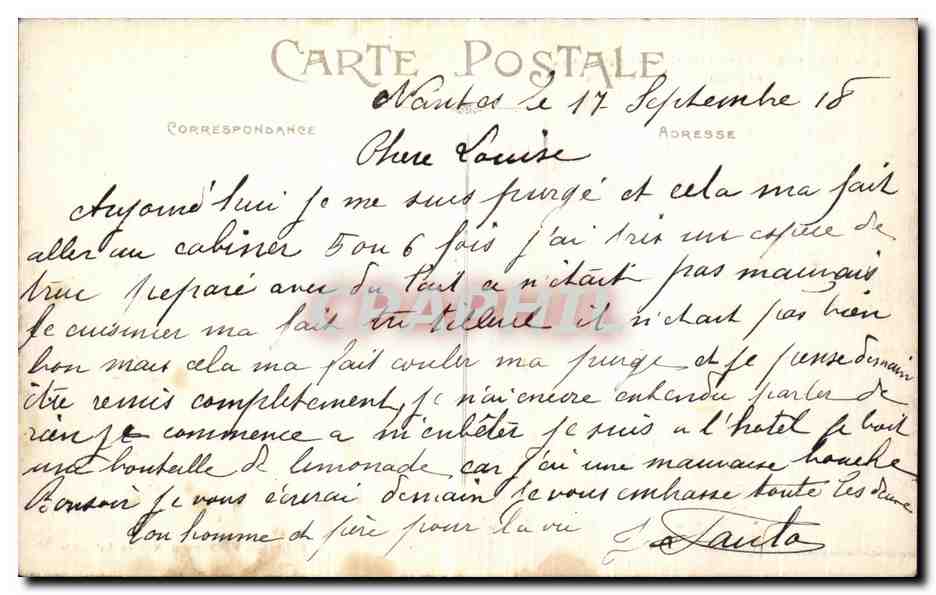 CARTE POSTALE
Nantes le 17 Septembre 18
CORRESPONDANCE
ADRESSE
Chere Louise
Aujour d'hui je me suis purgé et cela ma fait
aller au cabiner 5 ou 6 fois j'ai pris un de
truc preparé avec du lait a n'était pas mauvais
le cuisinier ma fait du tilleul il n'était pas bien
bon mais cela ma fait couler ma purge et je pense demain
être remis completement je n'ai encore entendu parler de
rien je commence a m'enbêter je suis a l'hotel je boit
une bouteille de limonade car j'ai une mauvaise bouche
Bonsoir je vous écrerai demain je vous embrasse toute les deux
ton homme et père pour la vie
CPAPHIL